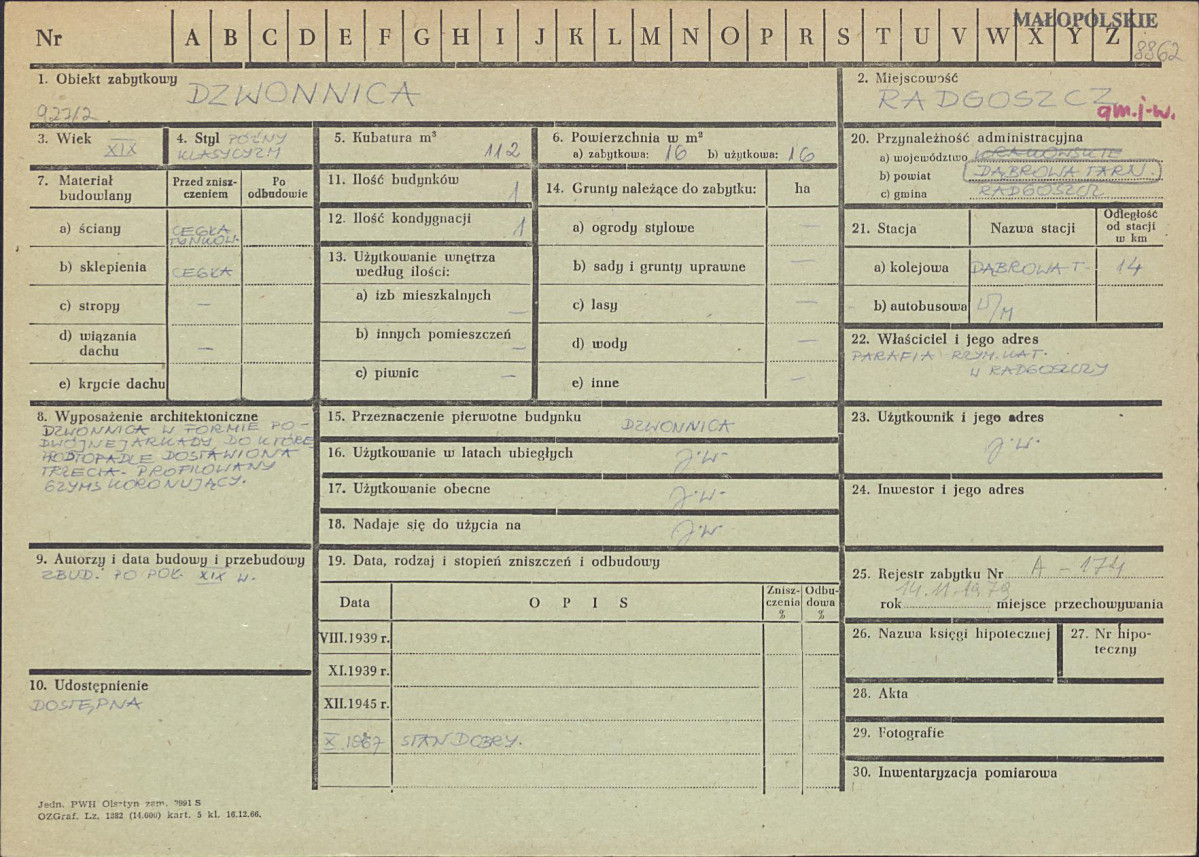 MAŁOPOLSKIE
Nr A B C D E F G H I J K L M N O P R S T U V W X Y Z
8862
1. Obiekt zabytkowy
DZWONNICA
927/2
2. Miejscowość
RADGOSZCZ
gm.j.w.
3. Wiek
XIX
4. Styl PÓŹNY
KLASYCYZM
5. Kubatura m³
112
6. Powierzchnia w m²
a) zabytkowa: 16 b) użytkowa: 16
20. Przynależność administracyjna
a) województwo KRAKOWSKIE
b) powiat DĄBROWA TARN.
c) gmina RADGOSZCZ
7. Materiał budowlany
Przed znisz-
czeniem
Po
odbudowie
a) ściany CEGŁA
TYNKOW.
b) sklepienia CEGŁA
c) stropy —
d) wiązania
dachu —
e) krycie dachu
11. Ilość budynków
1
12. Ilość kondygnacji
1
13. Użytkowanie wnętrza
według ilości:
a) izb mieszkalnych
—
b) innych pomieszczeń
—
c) piwnic —
14. Grunty należące do zabytku: ha
a) ogrody stylowe —
b) sady i grunty uprawne —
c) lasy —
d) wody —
e) inne —
21. Stacja Nazwa stacji
Odległość
od stacji
w km
a) kolejowa DĄBROWA T. 14
b) autobusowa
22. Właściciel i jego adres
PARAFIA RZYM. KAT.
W RADGOSZCZY
8. Wyposażenie architektoniczne
DZWONNICA W FORMIE PO-
DWÓJNEJ ARKADY, DO KTÓRE
PROSTOPADLE DOSTAWIONA
TRZECIA. PROFILOWANY
GZYMS KORONUJĄCY.
15. Przeznaczenie pierwotne budynku
DZWONNICA
16. Użytkowanie w latach ubiegłych
j.w.
17. Użytkowanie obecne
j.w.
18. Nadaje się do użycia na
j.w.
23. Użytkownik i jego adres
j.w.
24. Inwestor i jego adres
9. Autorzy i data budowy i przebudowy
ZBUD. PO POŁ. XIX W.
10. Udostępnienie
DOSTĘPNA
19. Data, rodzaj i stopień zniszczeń i odbudowy
Data O P I S
Znisz-
czenia
%
Odbu-
dowa
%
VIII.1939 r.
XI.1939 r.
XII.1945 r.
X 1967 STAN DOBRY.
25. Rejestr zabytku Nr A - 174
14.11.1979
rok miejsce przechowywania
26. Nazwa księgi hipotecznej
27. Nr hipo-
teczny
28. Akta
29. Fotografie
30. Inwentaryzacja pomiarowa
Jedn. PWH Olsztyn zam. 2991 S
OZGraf. Lz. 1382 (14.000) kart. 5 kl. 16.12.66.